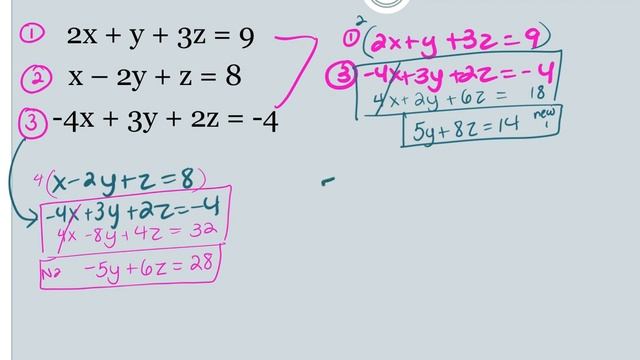 ① 2x + y + 3z = 9
② x – 2y + z = 8
③ -4x + 3y + 2z = -4
2
① (2x+y+3z=9)
③ -4x+3y+2z=-4
4x+2y+6z = 18
5y+8z=14 new 1
4(x-2y+z=8)
-4x+3y+2z=-4
4x-8y+4z=32
N2 -5y+6z=28